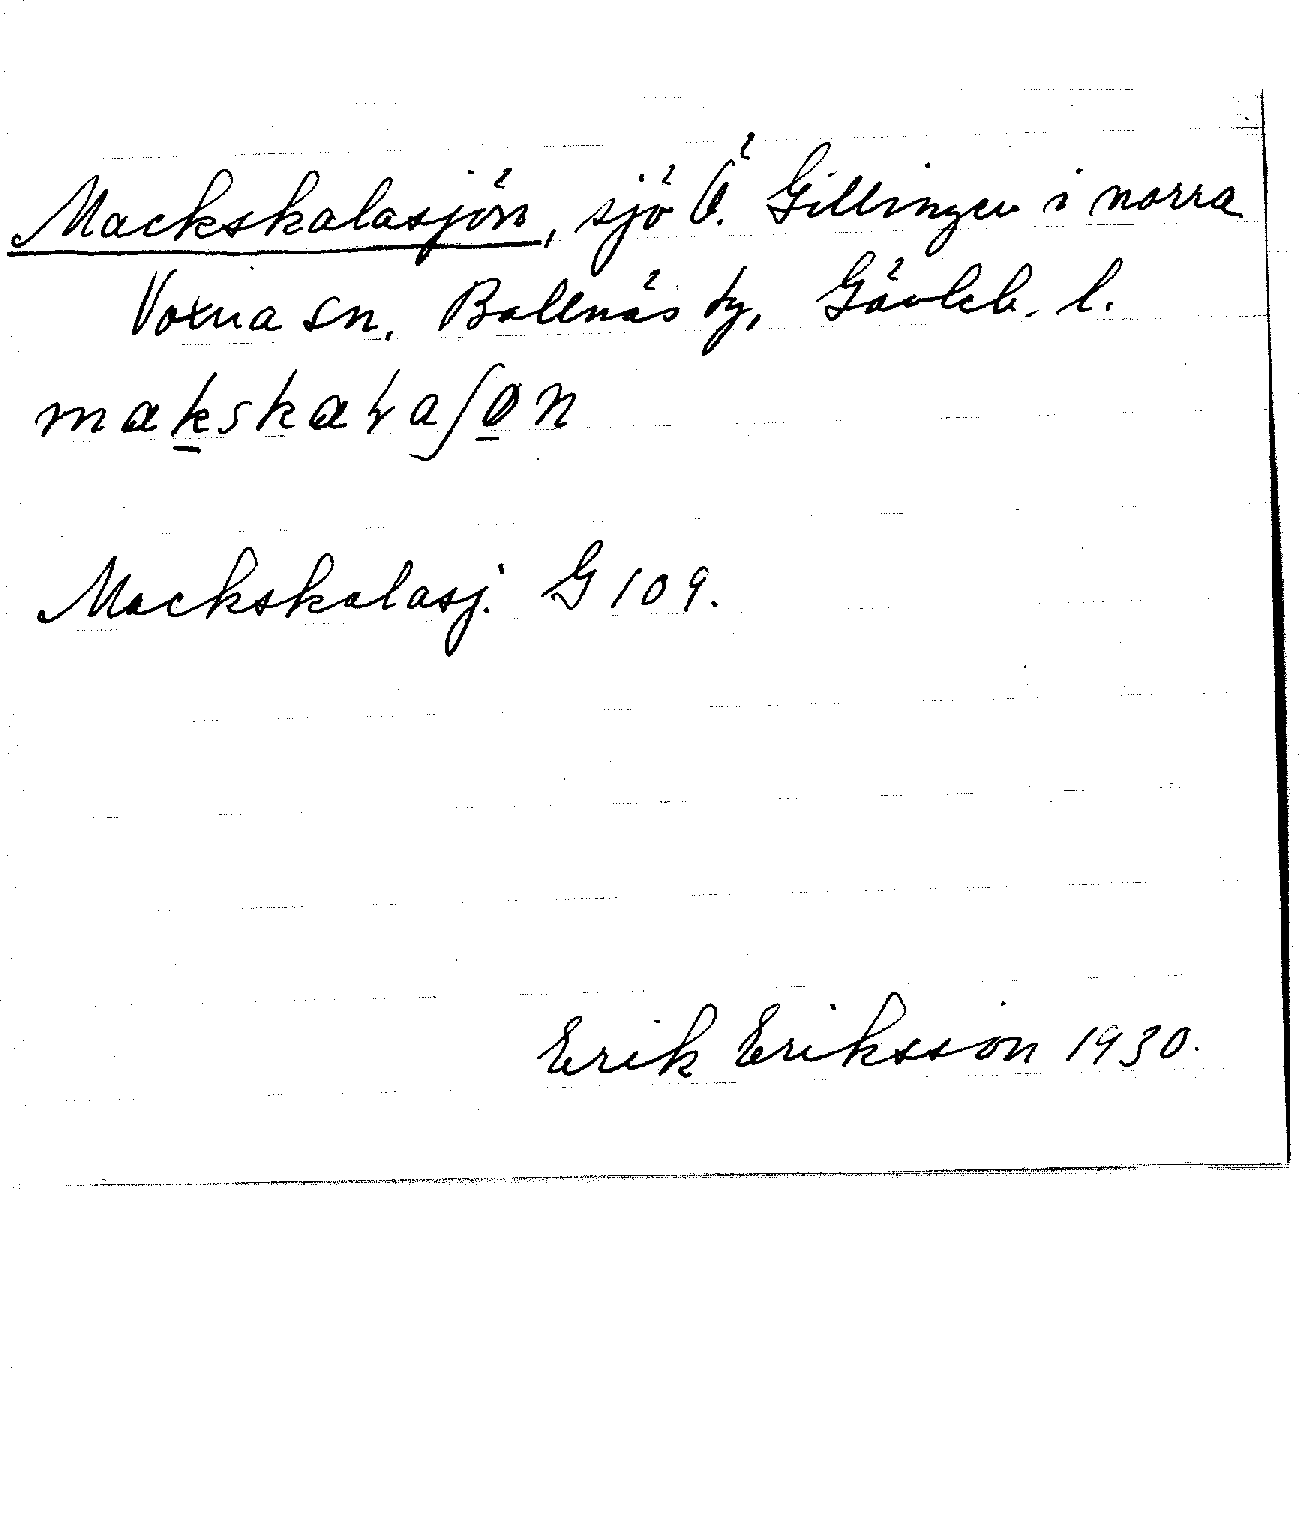 Mackskalasjön, sjö Ö. Gillingen i norra
Voxna sn. Bollnäs tg, Gävleb. l.
makskaɬaʃon
Mackskalasj. G 109.
Erik Eriksson 1930.